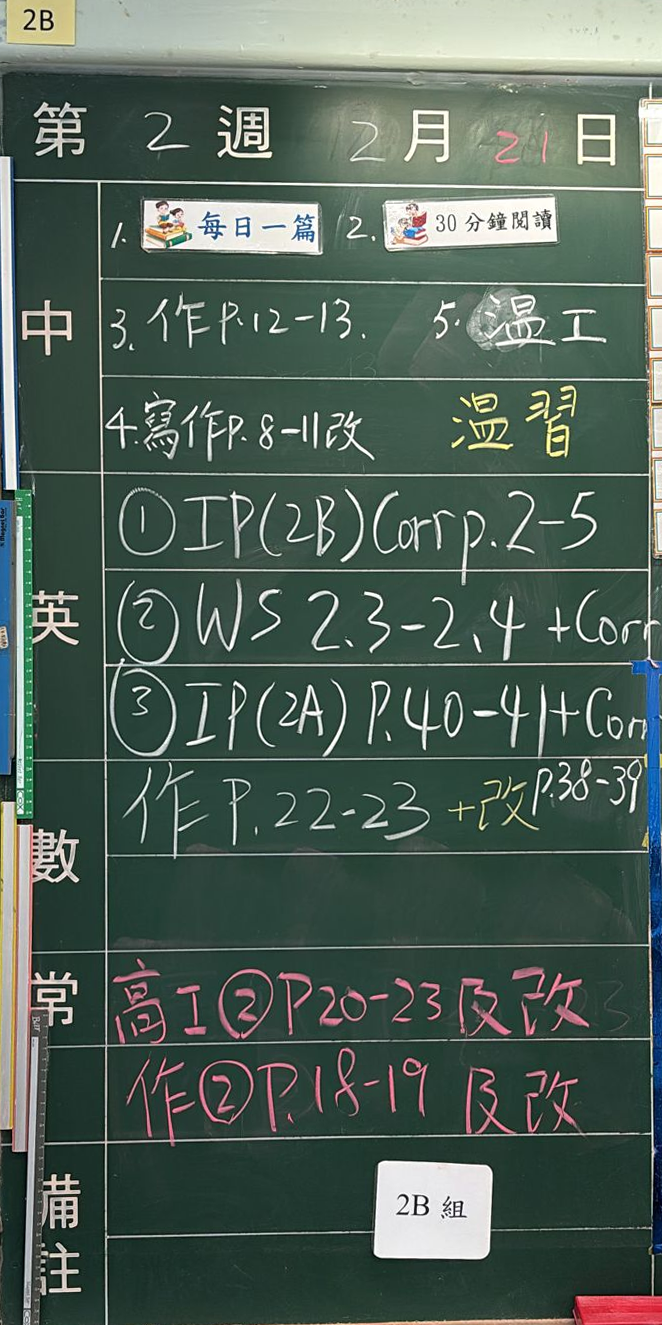 2B
第 2 週 2 月 21 日
中
1. 每日一篇 2. 30分鐘閱讀
3. 作P.12-13. 5. 温工
4. 寫作P. 8-11改 温習
英
① IP(2B) Corr p.2-5
② WS 2.3-2.4 +Corr
③ IP(2A) P.40-41+Corr
數
作 P.22-23 +改 P.38-39
常
高工②P20-23及改
作②P.18-19 及改
備註
2B 組